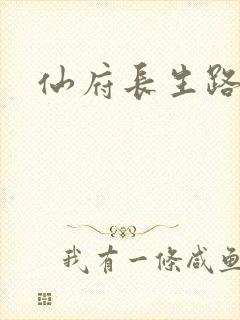 仙府長生路
我有一條咸鱼